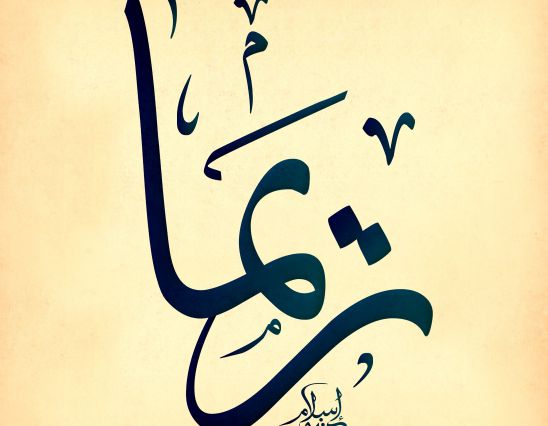 ريما
إسلام